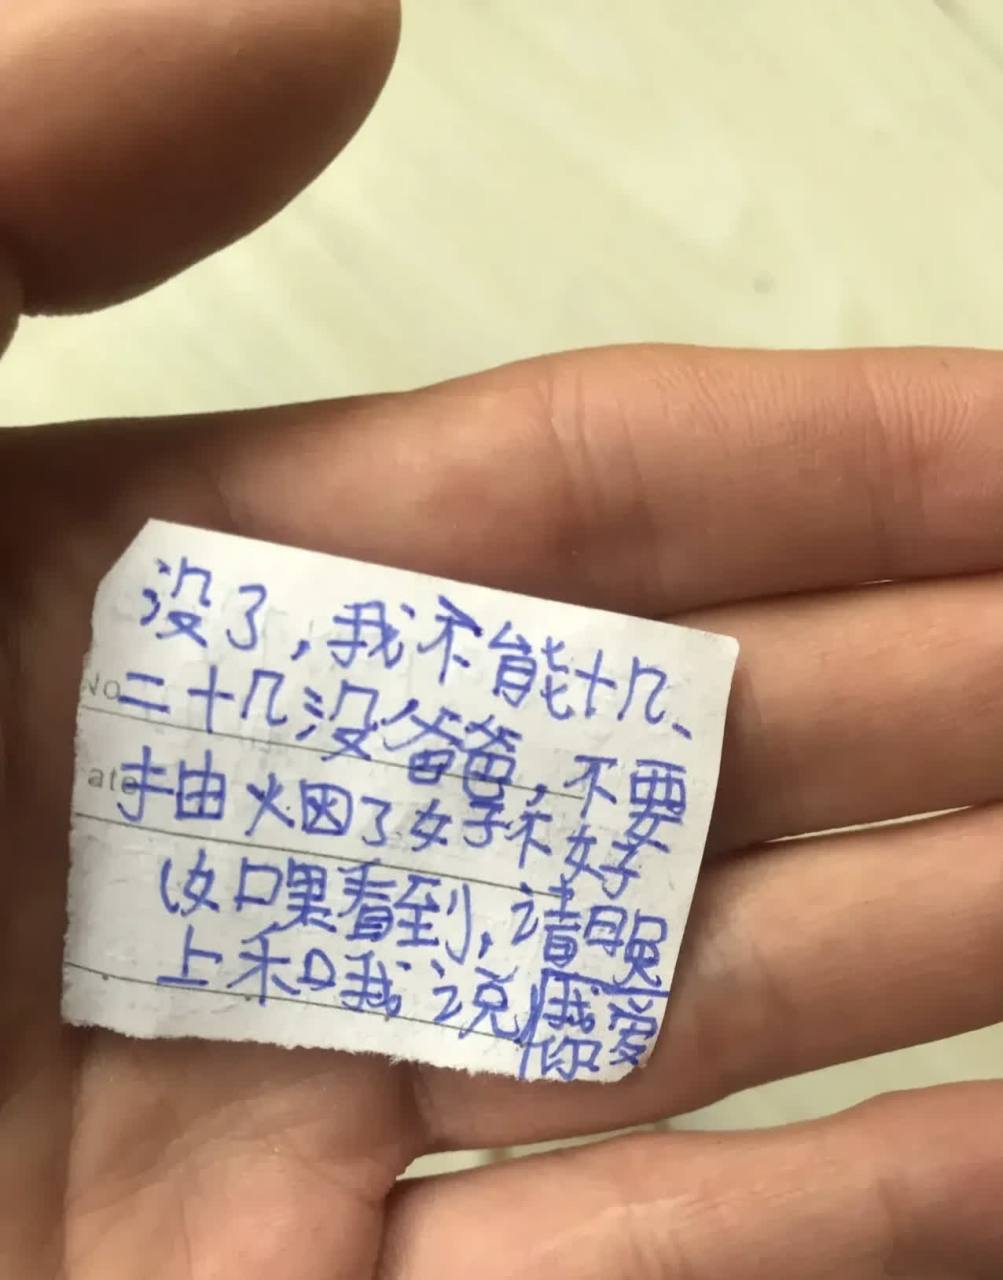 没了,我不能十几、
No
二十几没爸爸,不要
ate
抽烟了好不好
(如果看到,请晚
上和我说我爱
你